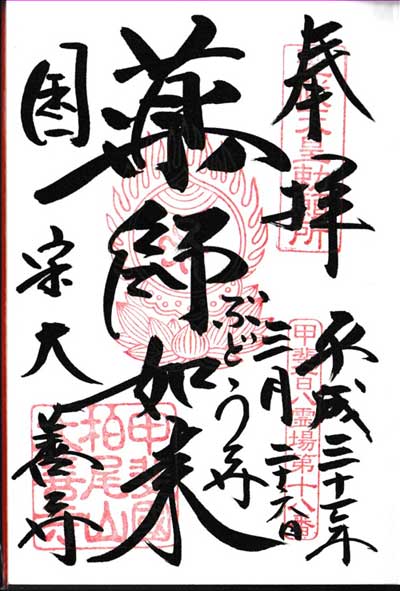 奉拝
天皇勅願所
平成三十年
三月二十六日
甲斐百八霊場第十八番
薬師如来
ぶどう寺
国宝 大善寺
甲斐國
柏尾山
大善寺